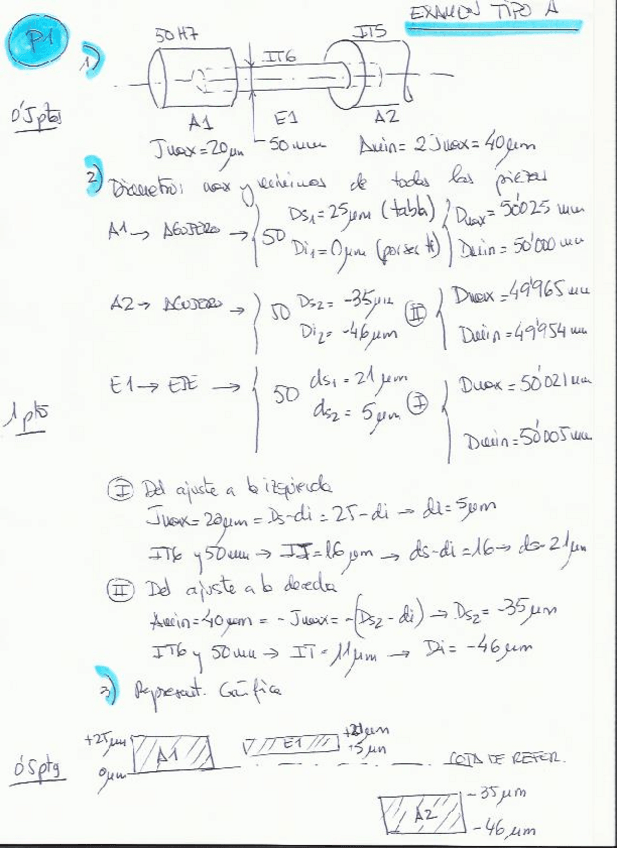 EXAMEN TIPO A
P1
1)
50H7
IT6
IT5
0'5 ptos
A1
E1
A2
Jmax=20μm
50 mm
Amin = 2 Jmax = 40μm
2) Diametros max y minimos de todas las piezas
A1 → AGUJERO → 50 Ds1=25μm (tabla) Dmax=50'025 mm
Di1=0μm (por ser H) Dmin=50'000 mm
A2 → AGUJERO → 50 Ds2 = -35μm II Dmax=49'965 mm
Di2 = -46μm Dmin=49'954 mm
1 pto
E1 → EJE → 50 ds1 = 21μm I Dmax=50'021 mm
ds2 = 5μm Dmin=50'005 mm
I Del ajuste a la izquierda
Jmax=20μm = Ds-di = 25-di → di=5μm
IT6 y 50mm → IT=16μm → ds-di=16 → ds=21μm
II Del ajuste a la derecha
Amin=40μm = -Jmax = -(Ds2-di) → Ds2=-35μm
IT6 y 50mm → IT=11μm → Di=-46μm
3) Represent. Gráfica
0'5 ptos
+25μm
A1
0μm
E1
+21μm
+5μm
COTA DE REFER.
A2
-35μm
-46μm